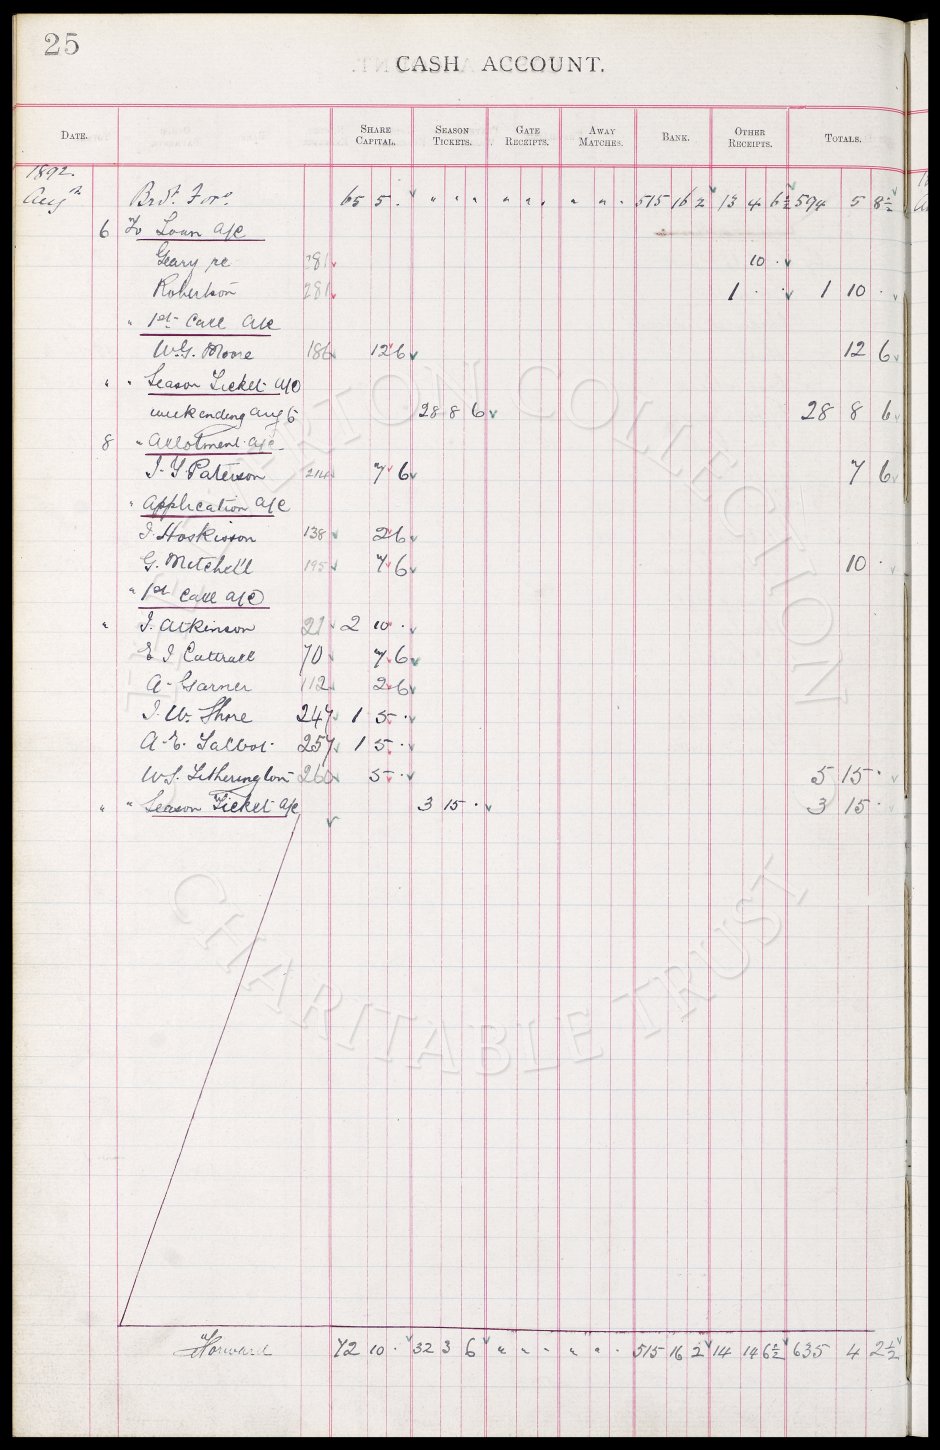 25
CASH ACCOUNT.
DATE. SHARE CAPITAL. SEASON TICKETS. GATE RECEIPTS. AWAY MATCHES. BANK. OTHER RECEIPTS. TOTALS.
1892.
Aug Brot. For. 65 5 . " " " " " " " " " 515 16 2 13 4 6½ 594 5 8½
6 To Loan a/c
Geary 281 10 .
Robertson 281 1 . . 1 10 .
" 1st Call a/c
W.G. Moore 186 12 6 12 6
" " Season Ticket a/c
week ending Aug 6 28 8 6 28 8 6
8 " Allotment a/c
J. Y. Paterson 214 7 6 7 6
" Application a/c
J. Hoskisson 138 2 6
G. Mitchell 195 7 6 10 .
" 1st Call a/c
" J. Atkinson 21 2 10 .
E J Cattrall 70 7 6
A. Garner 112 2 6
J. W. Shore 247 1 5 .
A. E. Talbot 257 1 5 .
W. J. Litherington 260 5 . 5 15 .
" " Season Ticket a/c 3 15 . 3 15 .
Forward 72 10 . 32 3 6 " " " " " . 515 16 2 14 14 6½ 635 4 2½
EVERTON COLLECTION
CHARITABLE TRUST